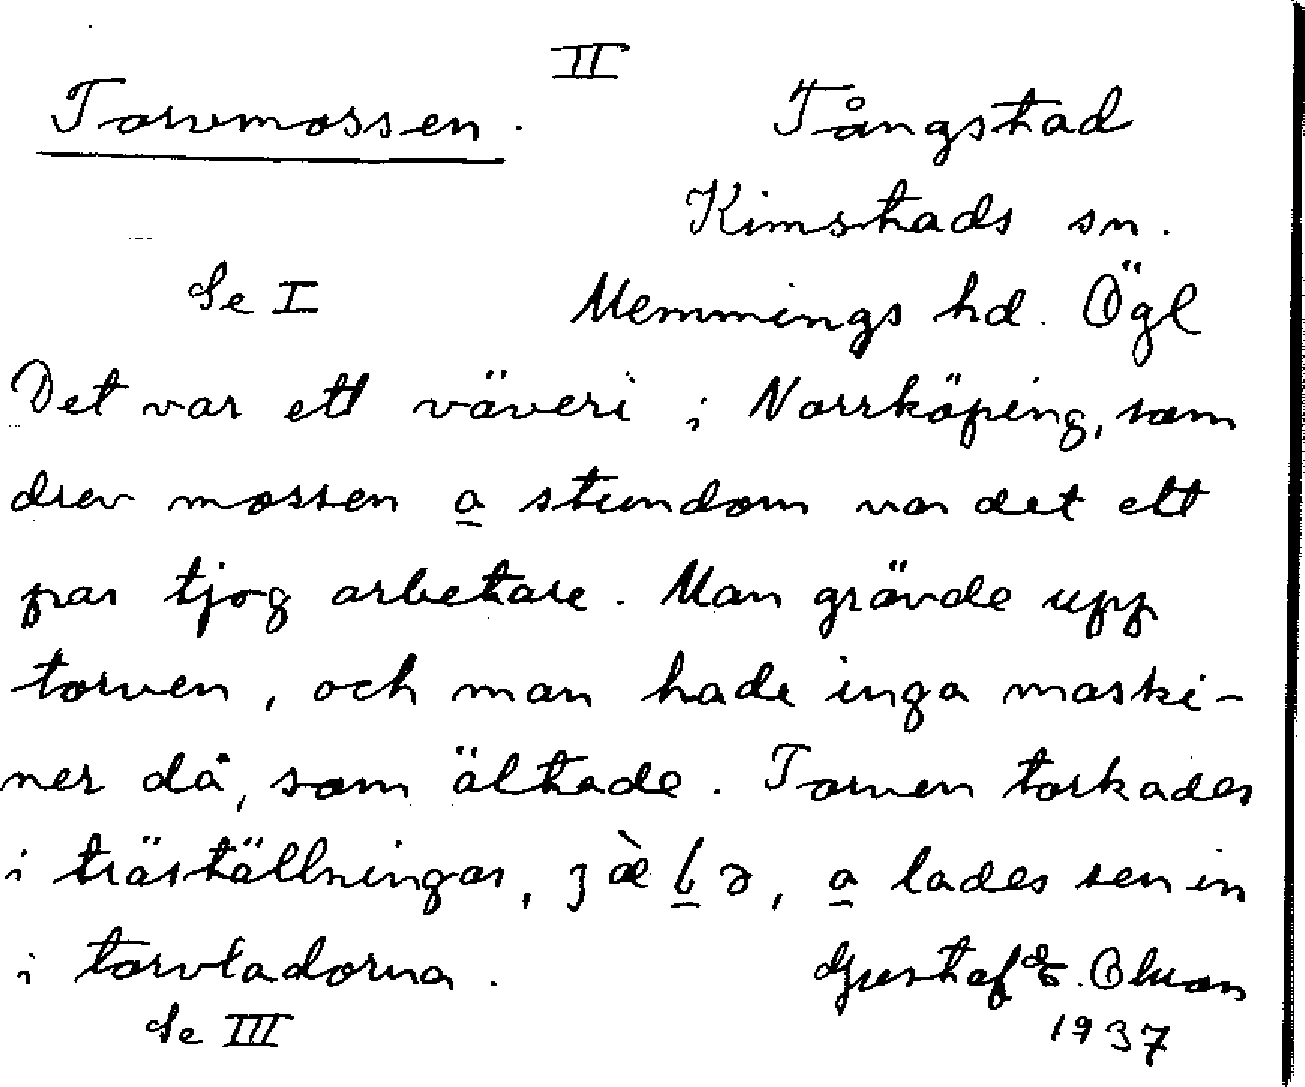 II
Torvmossen. Tångstad
Kimstads sn.
Se I Memmings hd. Ögl
Det var ett väveri i Norrköping, som
drev mossen a stundom var det ett
par tjog arbetare. Man grävde upp
torven, och man hade inga maski-
ner då, som ältade. Torven torkades
i träställningar, a lades sen in
i torvladorna. Gustaf E. Olson
Se III 1937